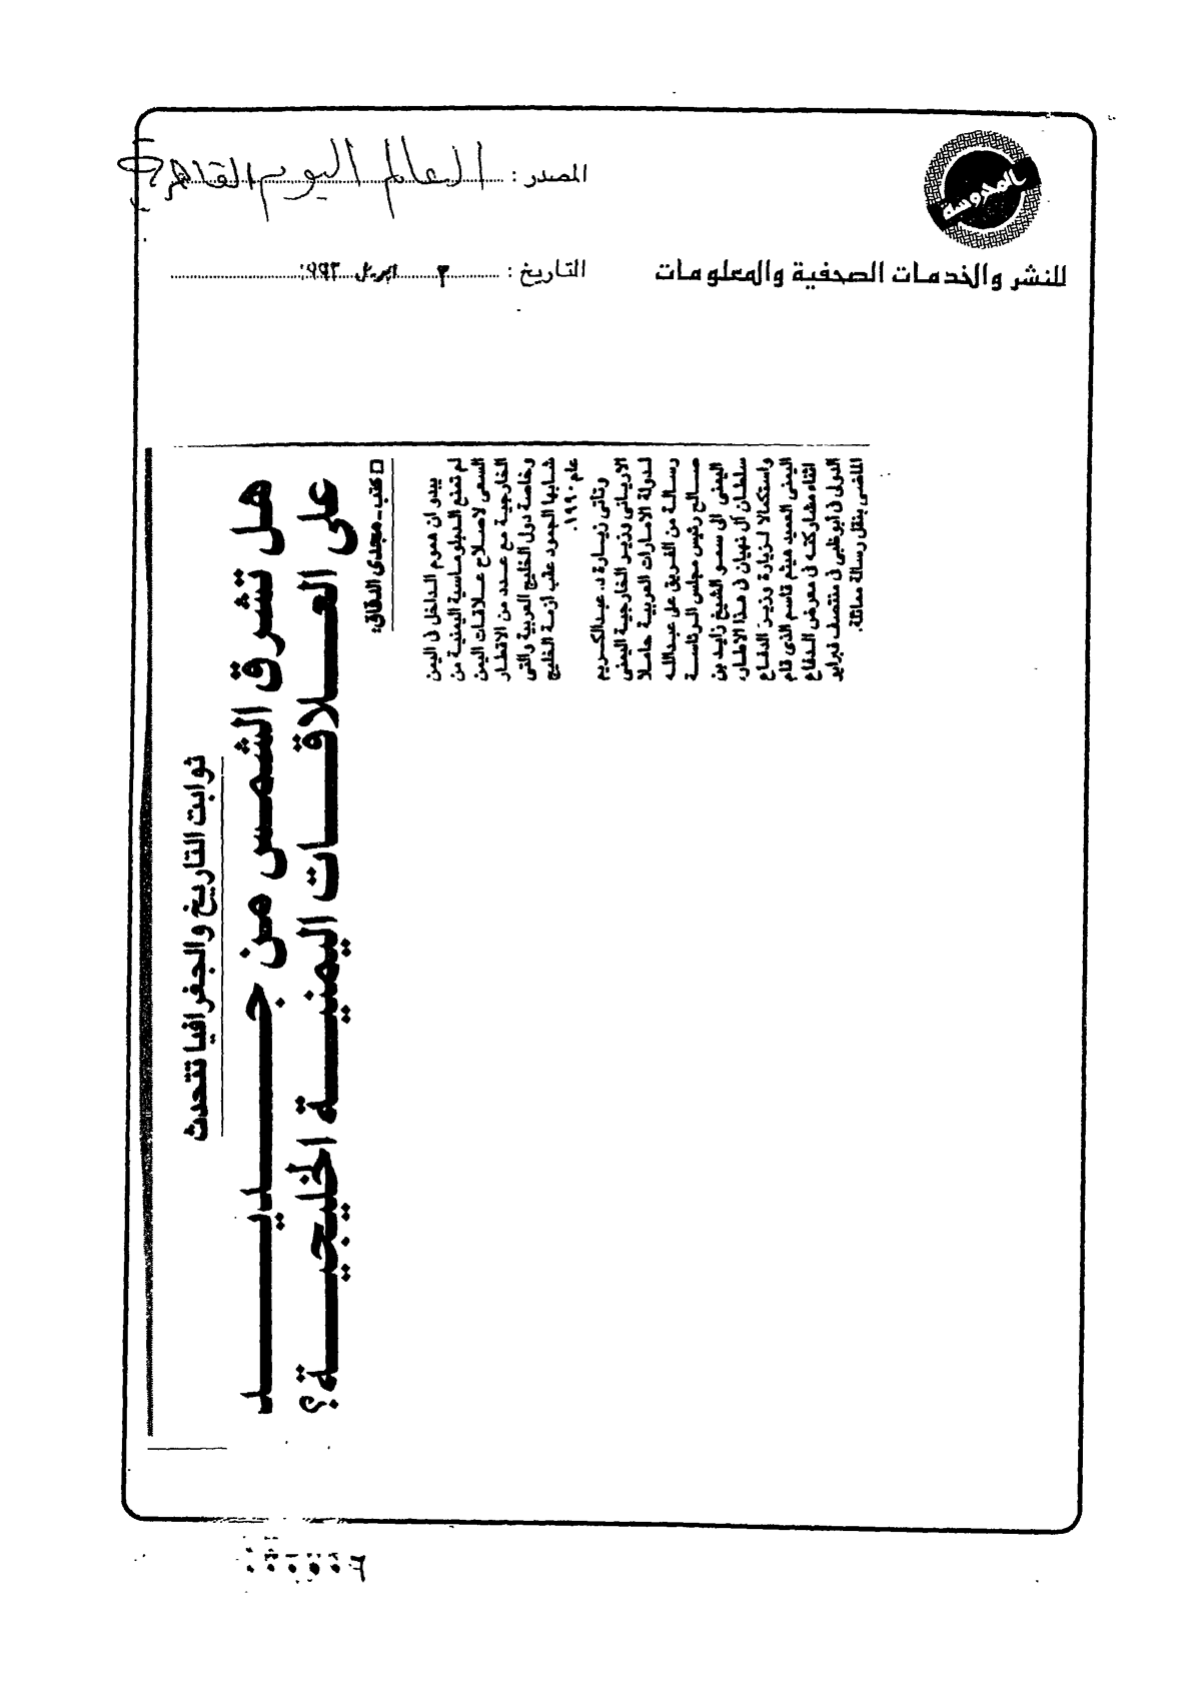 المحروسة
للنشر والخدمات الصحفية والمعلومات
المصدر : العالم اليوم القاهرية
التاريخ : ٣ ابريل ١٩٩٣
ثوابت التاريخ والجغرافيا تتحدث
هل تشرق الشمس من جديد
على العلاقات اليمنية الخليجية؟
□ كتب ـ مجدى الدقاق:
يبدو أن هموم الداخل فى اليمن
لم تمنع الدبلوماسية اليمنية من
السعى لاصلاح علاقات اليمن
الخارجية مع عدد من الاقطار
وخاصة دول الخليج العربية والتى
شابها الجمود عقب أزمة الخليج
عام ١٩٩٠.
وتأتى زيارة د. عبدالكريم
الاريانى وزير الخارجية اليمنى
لدولة الامارات العربية حاملا
رسالة من الفريق على عبدالله
صالح رئيس مجلس الرئاسة
اليمنى إلى سمو الشيخ زايد بن
سلطان آل نهيان فى هذا الاطار،
واستكمالا لزيارة وزير الدفاع
اليمنى العميد هيثم قاسم الذى قام
اثناء مشاركته فى معرض الدفاع
الدولى فى أبوظبى فى منتصف فبراير
الماضى بنقل رسالة مماثلة.